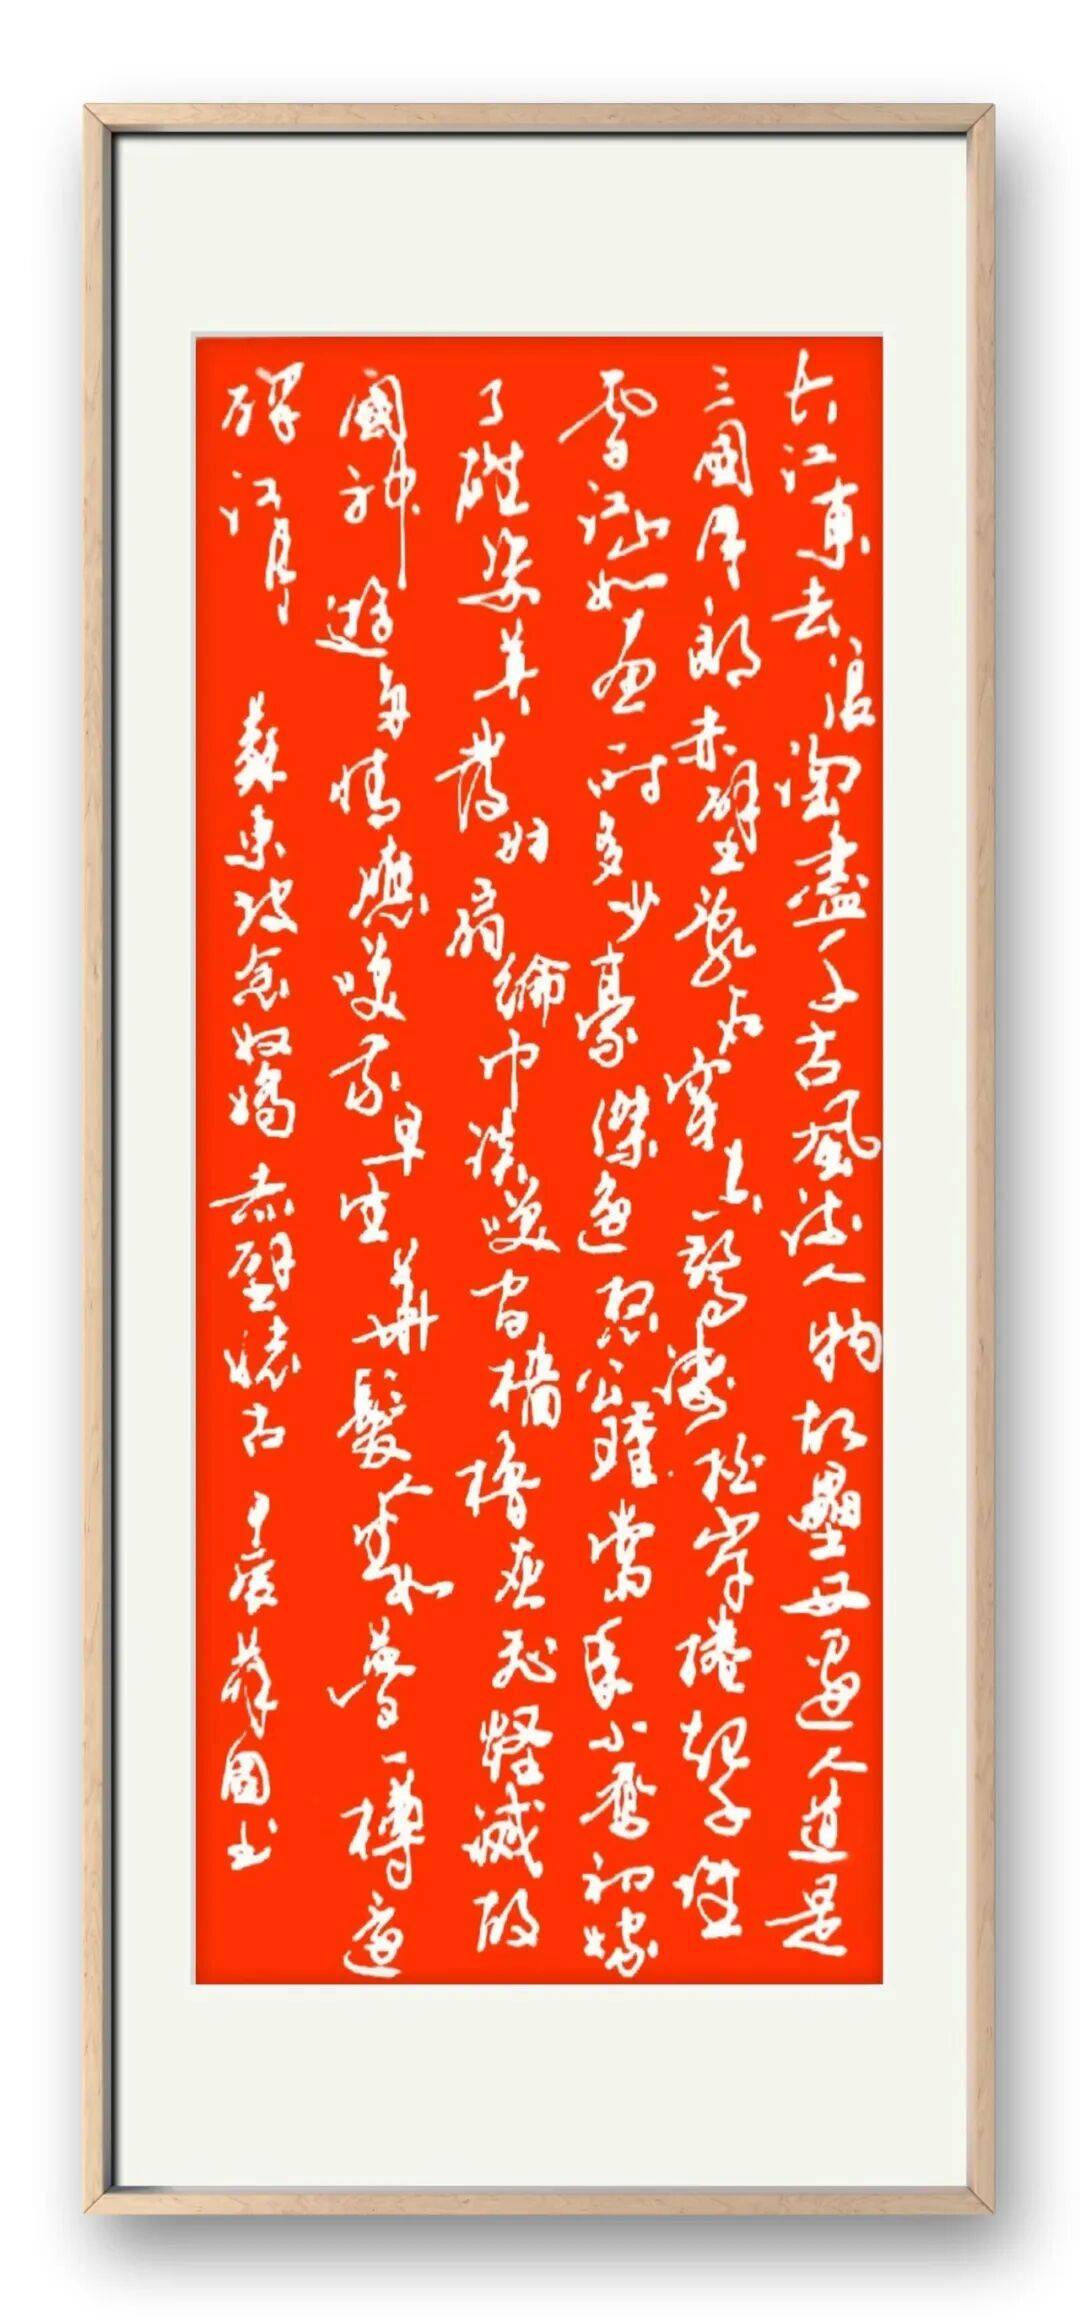 大江東去浪淘盡千古風流人物故壘西邊人道是
三國周郎赤壁亂石穿空驚濤拍岸捲起千堆
雪江山如畫一時多少豪傑遙想公瑾當年小喬初嫁
了雄姿英發羽扇綸巾談笑間檣櫓灰飛煙滅故
國神遊多情應笑我早生華髮人生如夢一樽還
酹江月 蘇東坡念奴嬌赤壁懷古 甲辰 國書